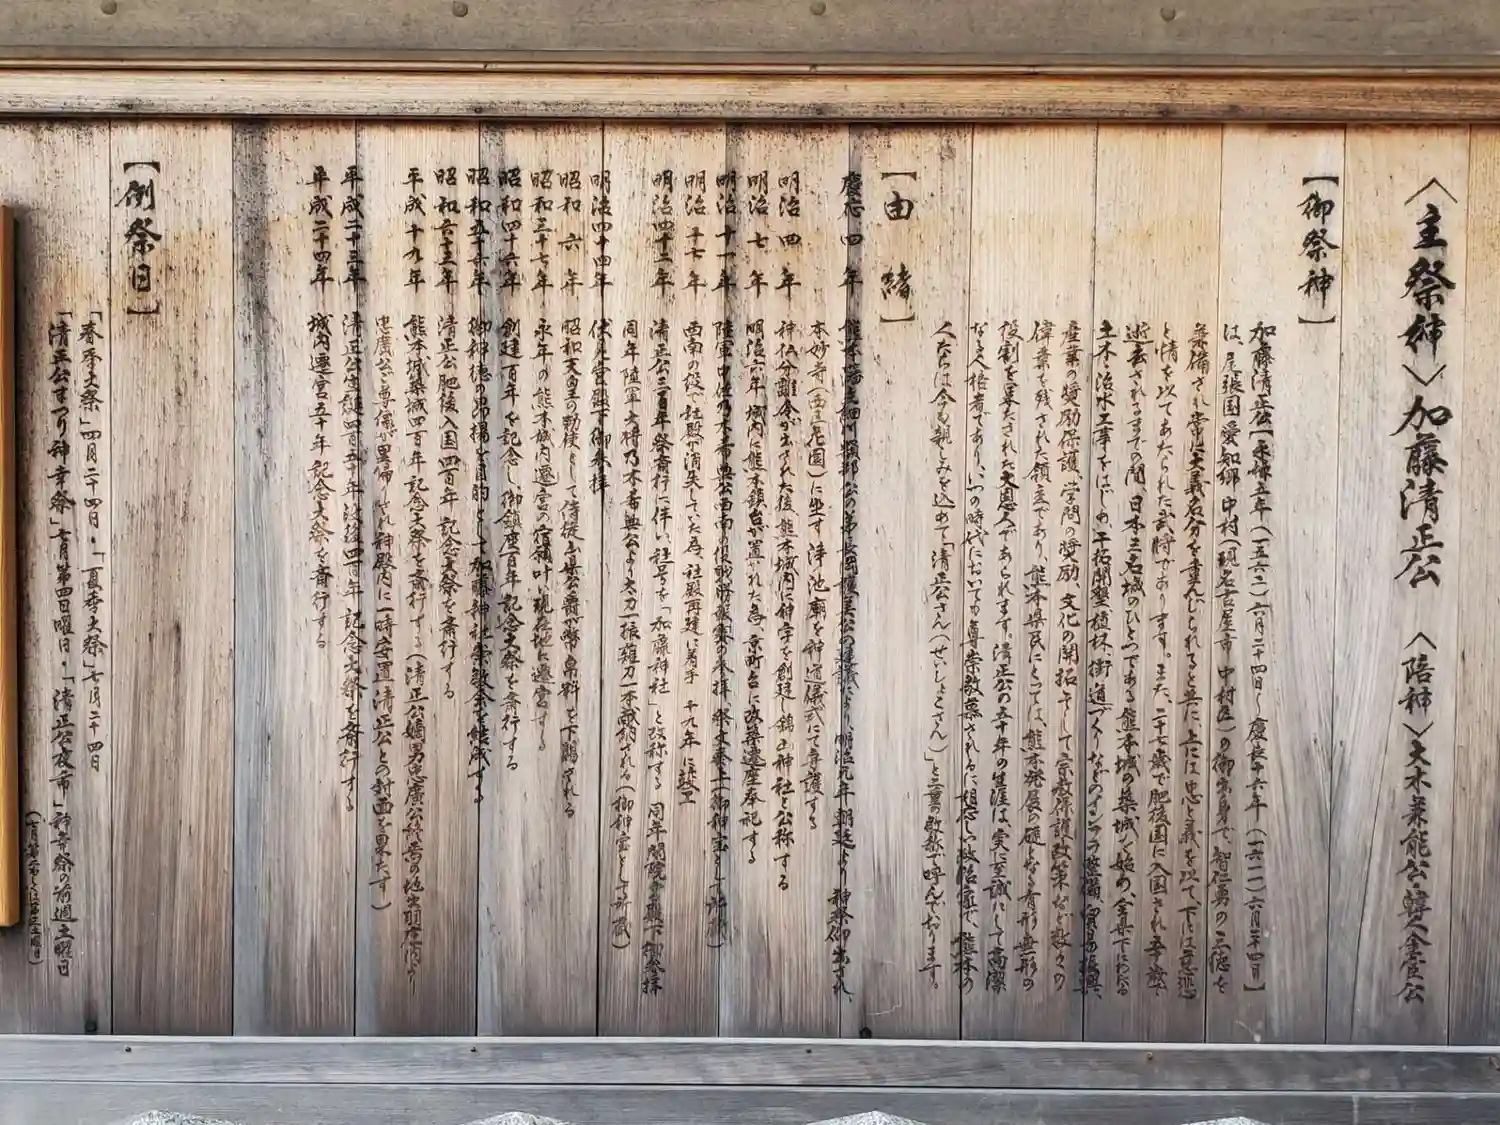 〈主祭神〉加藤清正公 〈陪神〉大木兼能公・韓人金宦公
【御祭神】
加藤清正公【永禄五年(一五六二)六月二十四日〜慶長十六年(一六一一)六月二十四日】
は、尾張国愛知郷中村(現名古屋市中村区)の御出身で、智仁勇の三徳を
兼備され常に大義名分を重んじられると共に、上には忠と義を以て、下には慈悲
と情を以てあたられた武将であります。また、二十七歳で肥後国に入国され五十歳で
逝去されるまでの間、日本三名城のひとつである熊本城の築城を始め、全県下にわたる
土木・治水工事をはじめ、干拓開墾、植林、街道づくりなどのインフラ整備、貿易振興、
産業の奨励保護、学問の奨励、文化の開拓そして宗教保護政策など数々の
偉業を残された領主であり、熊本県民にとっては、熊本発展の礎となる有形無形の
役割を果たされた大恩人であられます。清正公の五十年の生涯は、実に至誠にして高潔
なる人格者であり、いつの時代においても尊崇敬慕されるに相応しい政治家で、熊本の
人たちは今も親しみを込めて「清正公さん(せいしょこさん)」と二重の敬称で呼んでおります。
【由緒】
慶応四年 熊本藩主細川韶邦公の弟・長岡護美公の建議により、明治元年朝廷より神祭仰出され、
本妙寺(西区花園)に坐す浄池廟を神道儀式にて守護する
明治四年 神仏分離令が出された後、熊本城内に神宇を創建し錦山神社と公称する
明治七年 明治六年城内に熊本鎮台が置かれた為、京町台に改築遷座奉祀する
明治十一年 陸軍中佐乃木希典公西南の役戦勝報賽の参拝、祭文奏上(御神宝として所蔵)
明治十七年 西南の役で社殿が消失していた為、社殿再建に着手 十九年に竣工
明治四十二年 清正公三百年祭斎行に伴い、社号を「加藤神社」と改称する 同年閑院宮殿下御参拝
同年陸軍大将乃木希典公より太刀一振薙刀一本献納される(御神宝として所蔵)
明治四十四年 伏見宮殿下御参拝
昭和六年 昭和天皇の勅使として侍従山県公爵が幣帛料を下賜される
昭和三十七年 永年の熊本城内遷宮の宿願叶い現在地に遷宮する
昭和四十六年 創建百年を記念し、御鎮座百年記念大祭を斎行する
昭和五十六年 御神徳の昂揚を目的として加藤神社崇敬会を結成する
昭和六十三年 清正公肥後入国四百年記念大祭を斎行する
平成十九年 熊本城築城四百年記念大祭を斎行する(清正公嫡男忠廣公終焉の地出羽庄内より
忠廣公ご尊儀が里帰りされ神殿内に一時安置清正公との対面を果たす)
平成二十三年 清正公生誕四百五十年没後四百年記念大祭を斎行する
平成二十四年 城内遷宮五十年記念大祭を斎行する
【例祭日】
「春季大祭」四月二十四日・「夏季大祭」七月二十四日
「清正公まつり神幸祭」七月第四日曜日・「清正公夜市」神幸祭の前週土曜日
(七月第二もしくは第三土曜日)